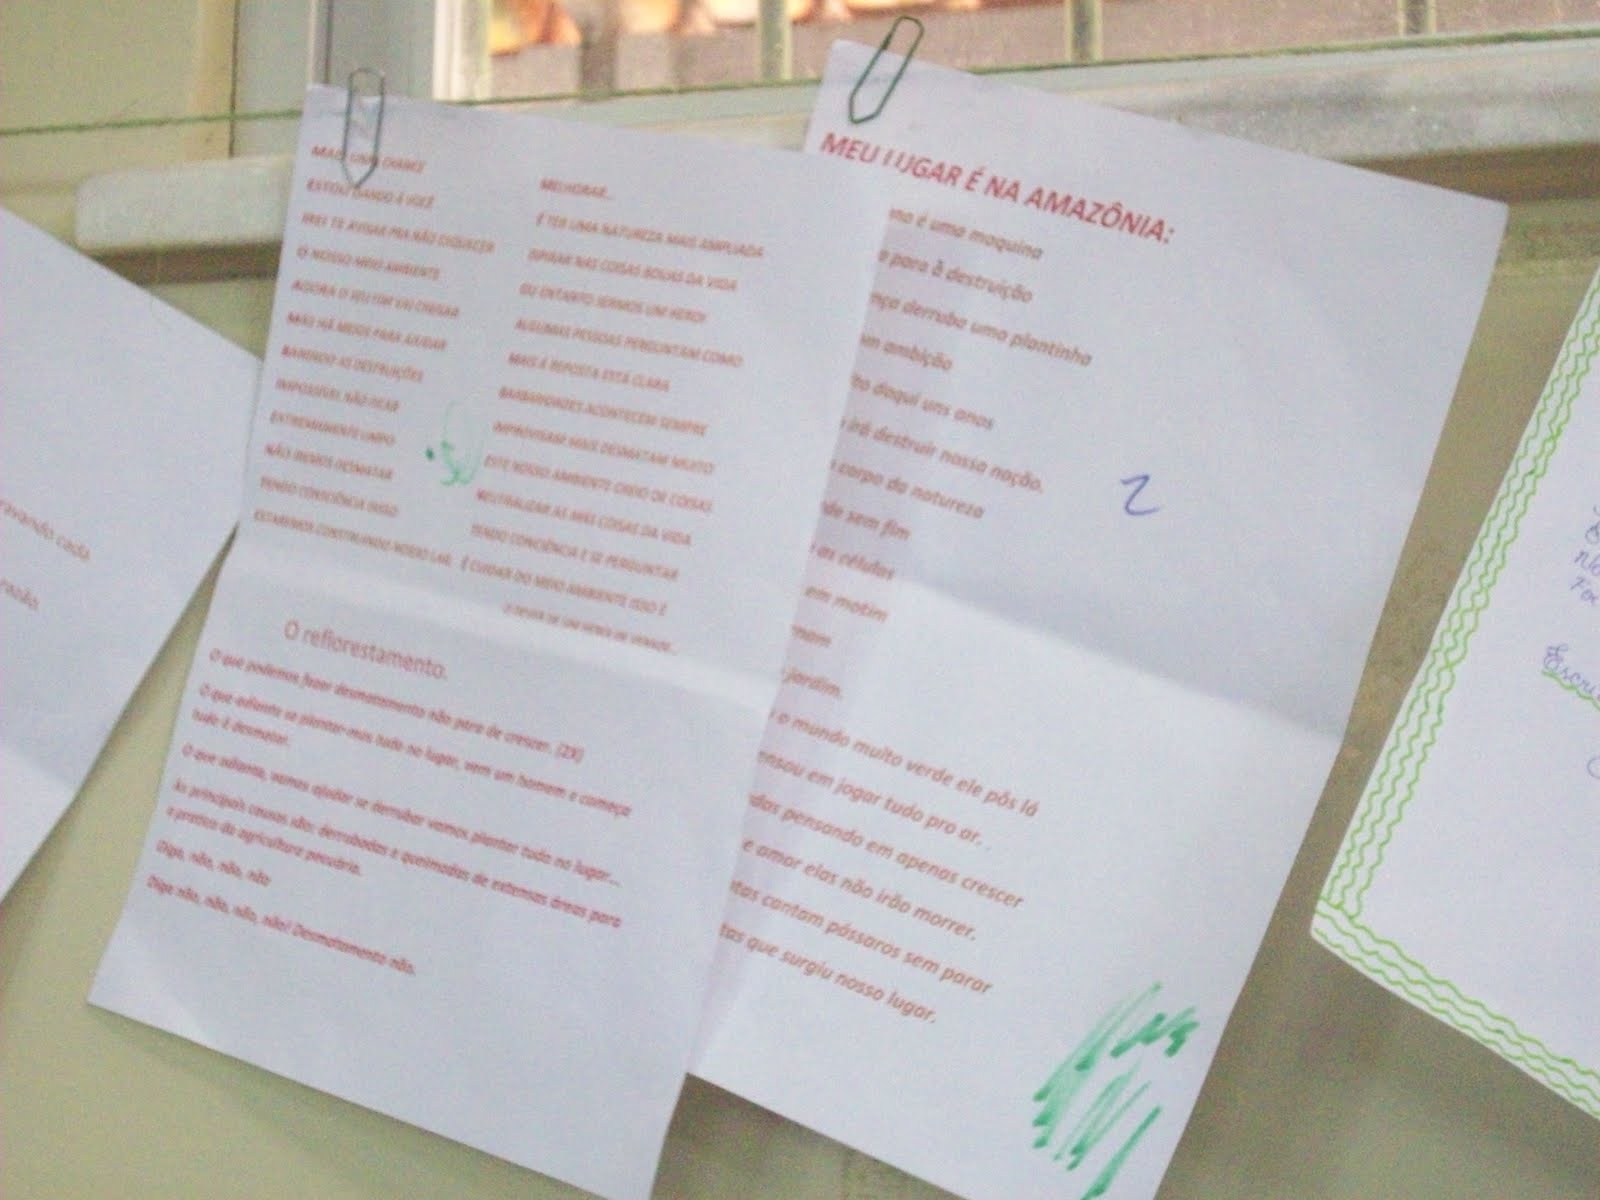 ravando cada
razão.
MAIS UMA CHANCE
ESTOU DANDO À VOCÊ
IREI TE AVISAR PRA NÃO ESQUECER
O NOSSO MEIO AMBIENTE
AGORA O SEU FIM VAI CHEGAR
MAS HÁ MEIOS PARA AJUDAR
BANINDO AS DESTRUIÇÕES
IMPOSSÍVEL NÃO FICAR
EXTREMAMENTE LIMPO
NÃO IREMOS DESMATAR
TENDO CONSCIÊNCIA DISSO
ESTAREMOS CONSTRUINDO NOSSO LAR.
MELHORAR...
É TER UMA NATUREZA MAIS AMPLIADA
INPIRAR NAS COISAS BOUAS DA VIDA
OU ENTANTO SERMOS UM HEROI
ALGUMAS PESSOAS PERGUNTAM COMO
MAIS A REPOSTA ESTÁ CLARA
BARBARIDADES ACONTECEM SEMPRE
IMPROVISAM MAIS DESMATAM MUITO
ESTE NOSSO AMBIENTE CHEIO DE COISAS
NEUTRALIZAR AS MÁS COISAS DA VIDA
TENDO CONCIÊNCIA E SE PERGUNTAR
É CUIDAR DO MEIO AMBIENTE ISSO É
O reflorestamento.
O que podemos fazer desmatamento não para de crescer. (2X)
O que adianta se plantar-mos tudo no lugar, vem um homem e começa
tudo é desmatar.
O que adianta, vamos ajudar se derrubar vamos plantar tudo no lugar...
As principais causas são: derrubadas e queimadas de extensas áreas para
a pratica da agricultura pecuária.
Diga, não, não, não
Diga não, não, não, não! Desmatamento não.
MEU LUGAR É NA AMAZÔNIA:
é uma maquina
para à destruição
derruba uma plantinha
ambição
daqui uns anos
irá destruir nossa nação.
corpo da natureza
de sem fim
as células
em motim
mam
jardim.
o mundo muito verde ele pôs lá
ensou em jogar tudo pro ar.
das pensando em apenas crescer
e amor elas não irão morrer.
tas cantam pássaros sem parar
tas que surgiu nosso lugar.
2